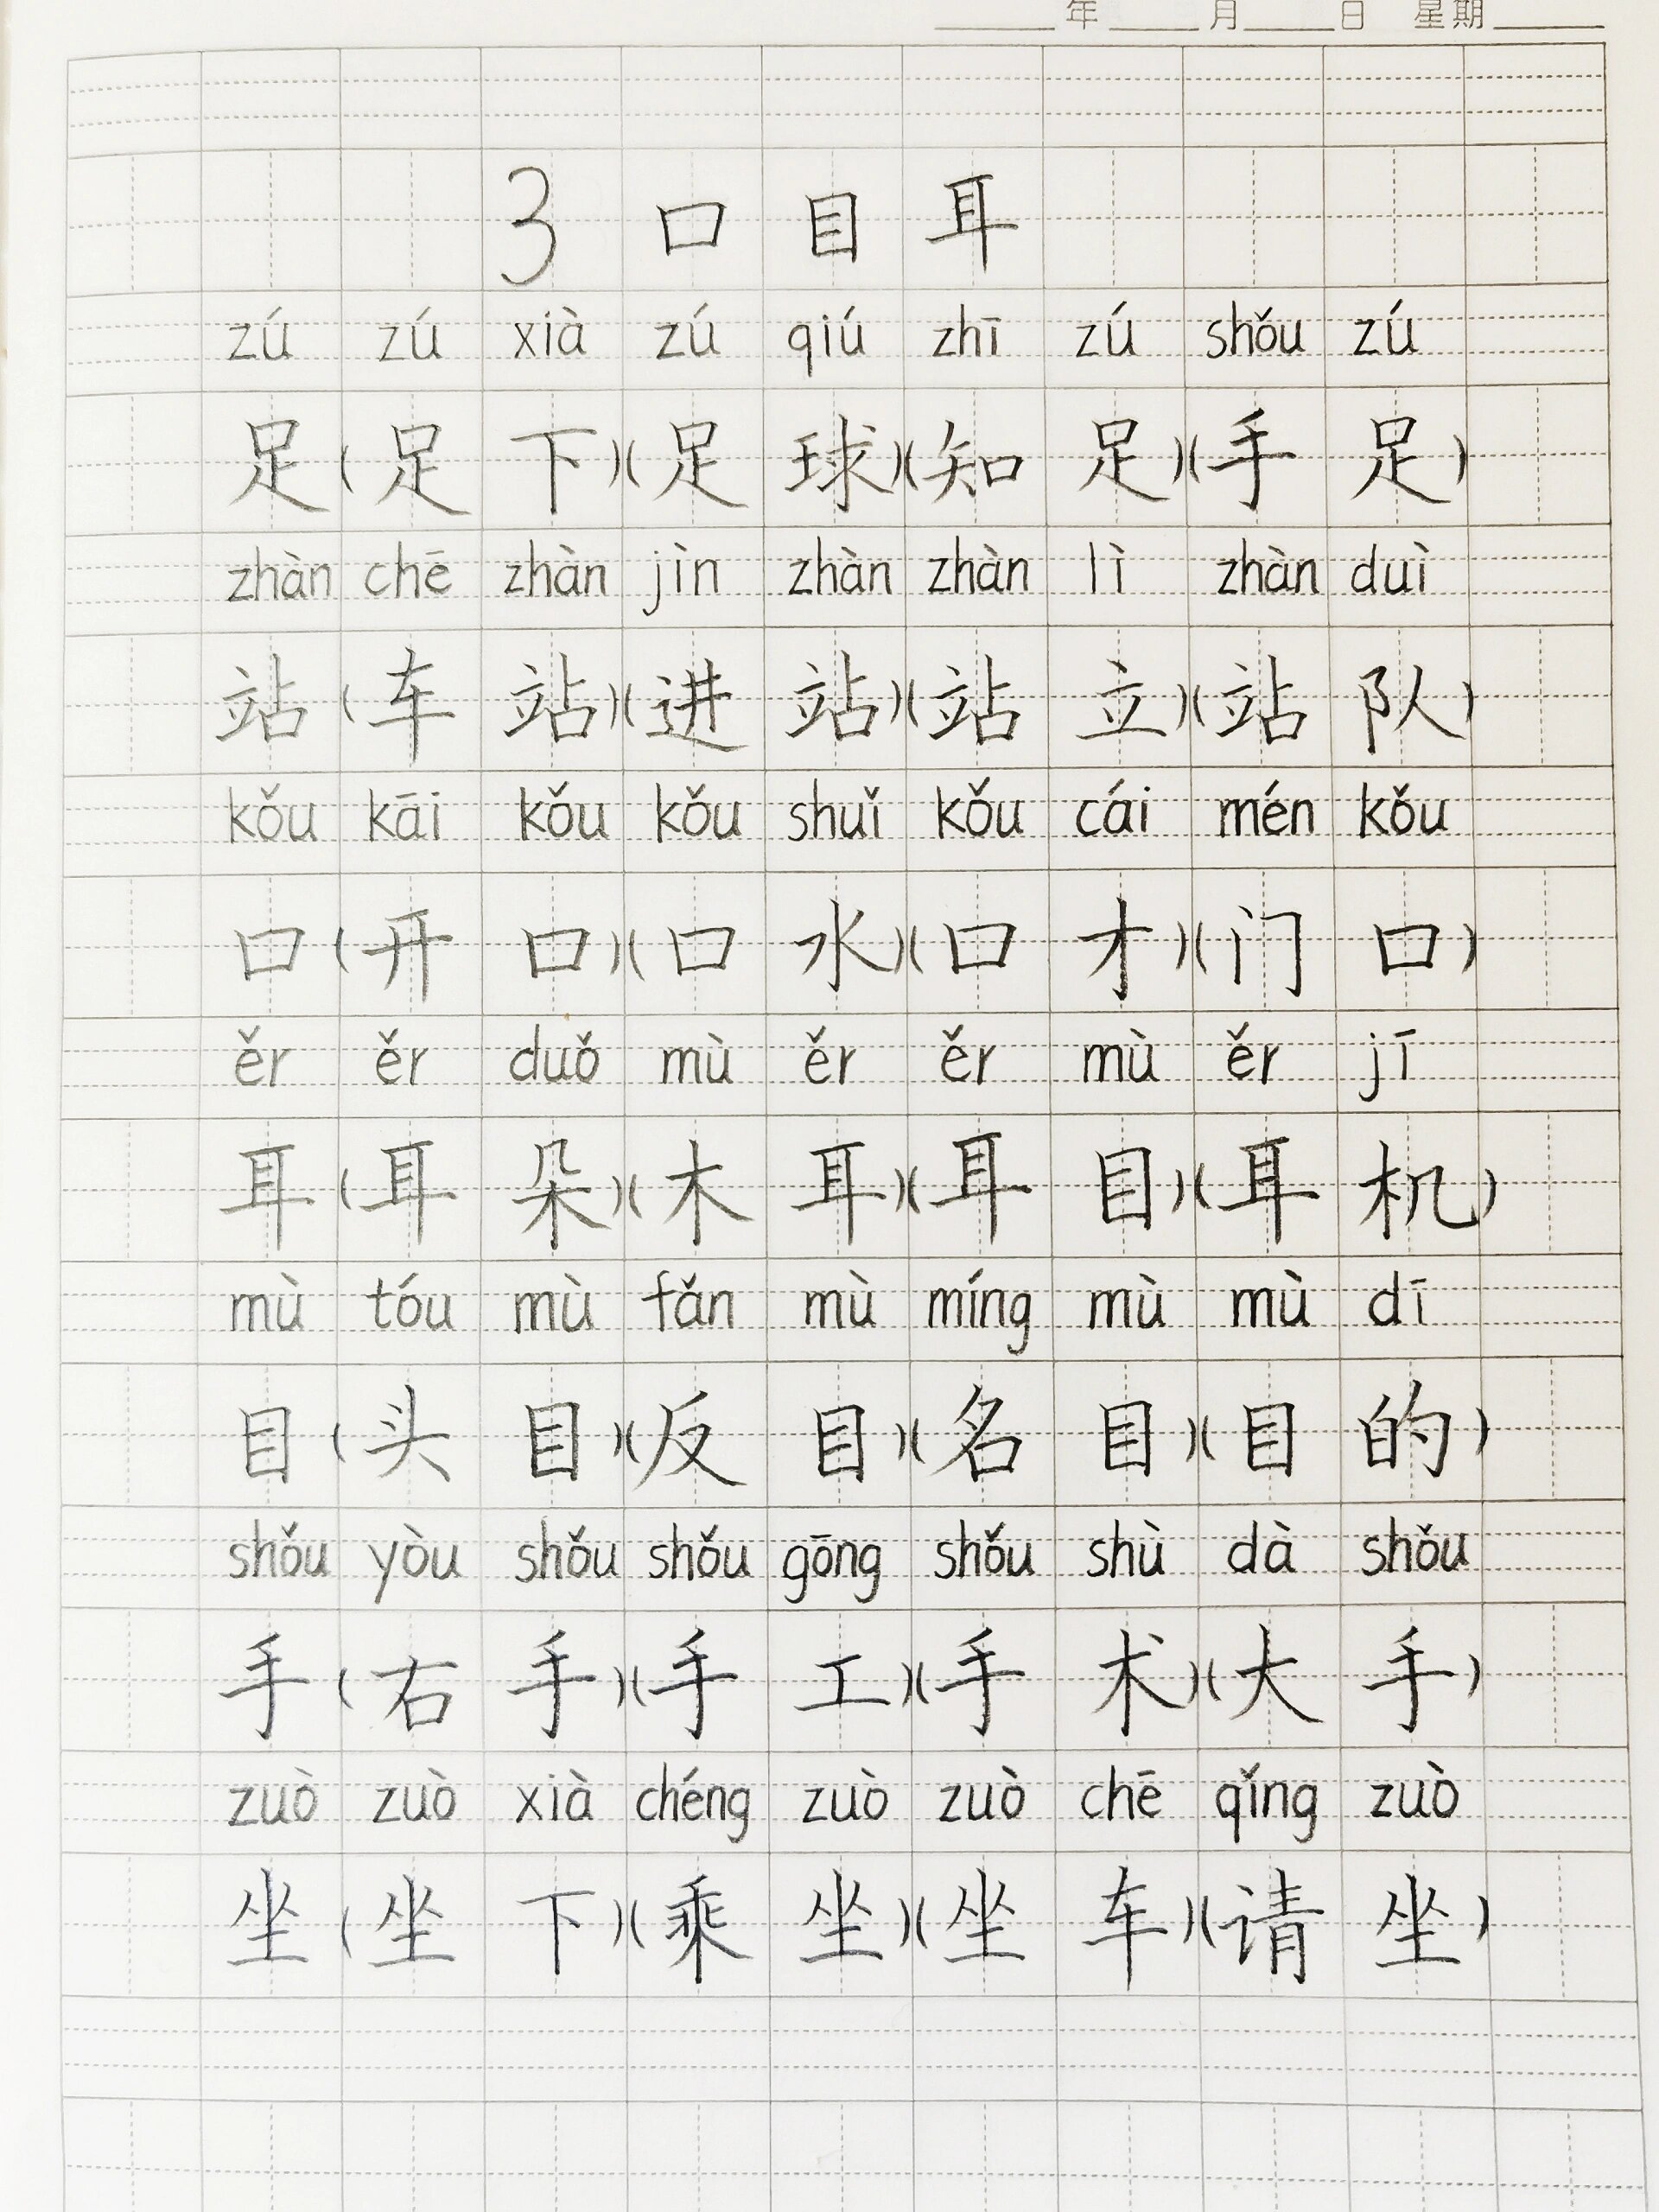 年 月 日 星期
3 口 目 耳
zú zú xià zú qiú zhī zú shǒu zú
足(足下)(足球)(知足)(手足)
zhàn chē zhàn jìn zhàn zhàn lì zhàn duì
站(车站)(进站)(站立)(站队)
kǒu kāi kǒu kǒu shuǐ kǒu cái mén kǒu
口(开口)(口水)(口才)(门口)
ěr ěr duǒ mù ěr ěr mù ěr jī
耳(耳朵)(木耳)(耳目)(耳机)
mù tóu mù fǎn mù míng mù mù dī
目(头目)(反目)(名目)(目的)
shǒu yòu shǒu shǒu gōng shǒu shù dà shǒu
手(右手)(手工)(手术)(大手)
zuò zuò xià chéng zuò zuò chē qǐng zuò
坐(坐下)(乘坐)(坐车)(请坐)